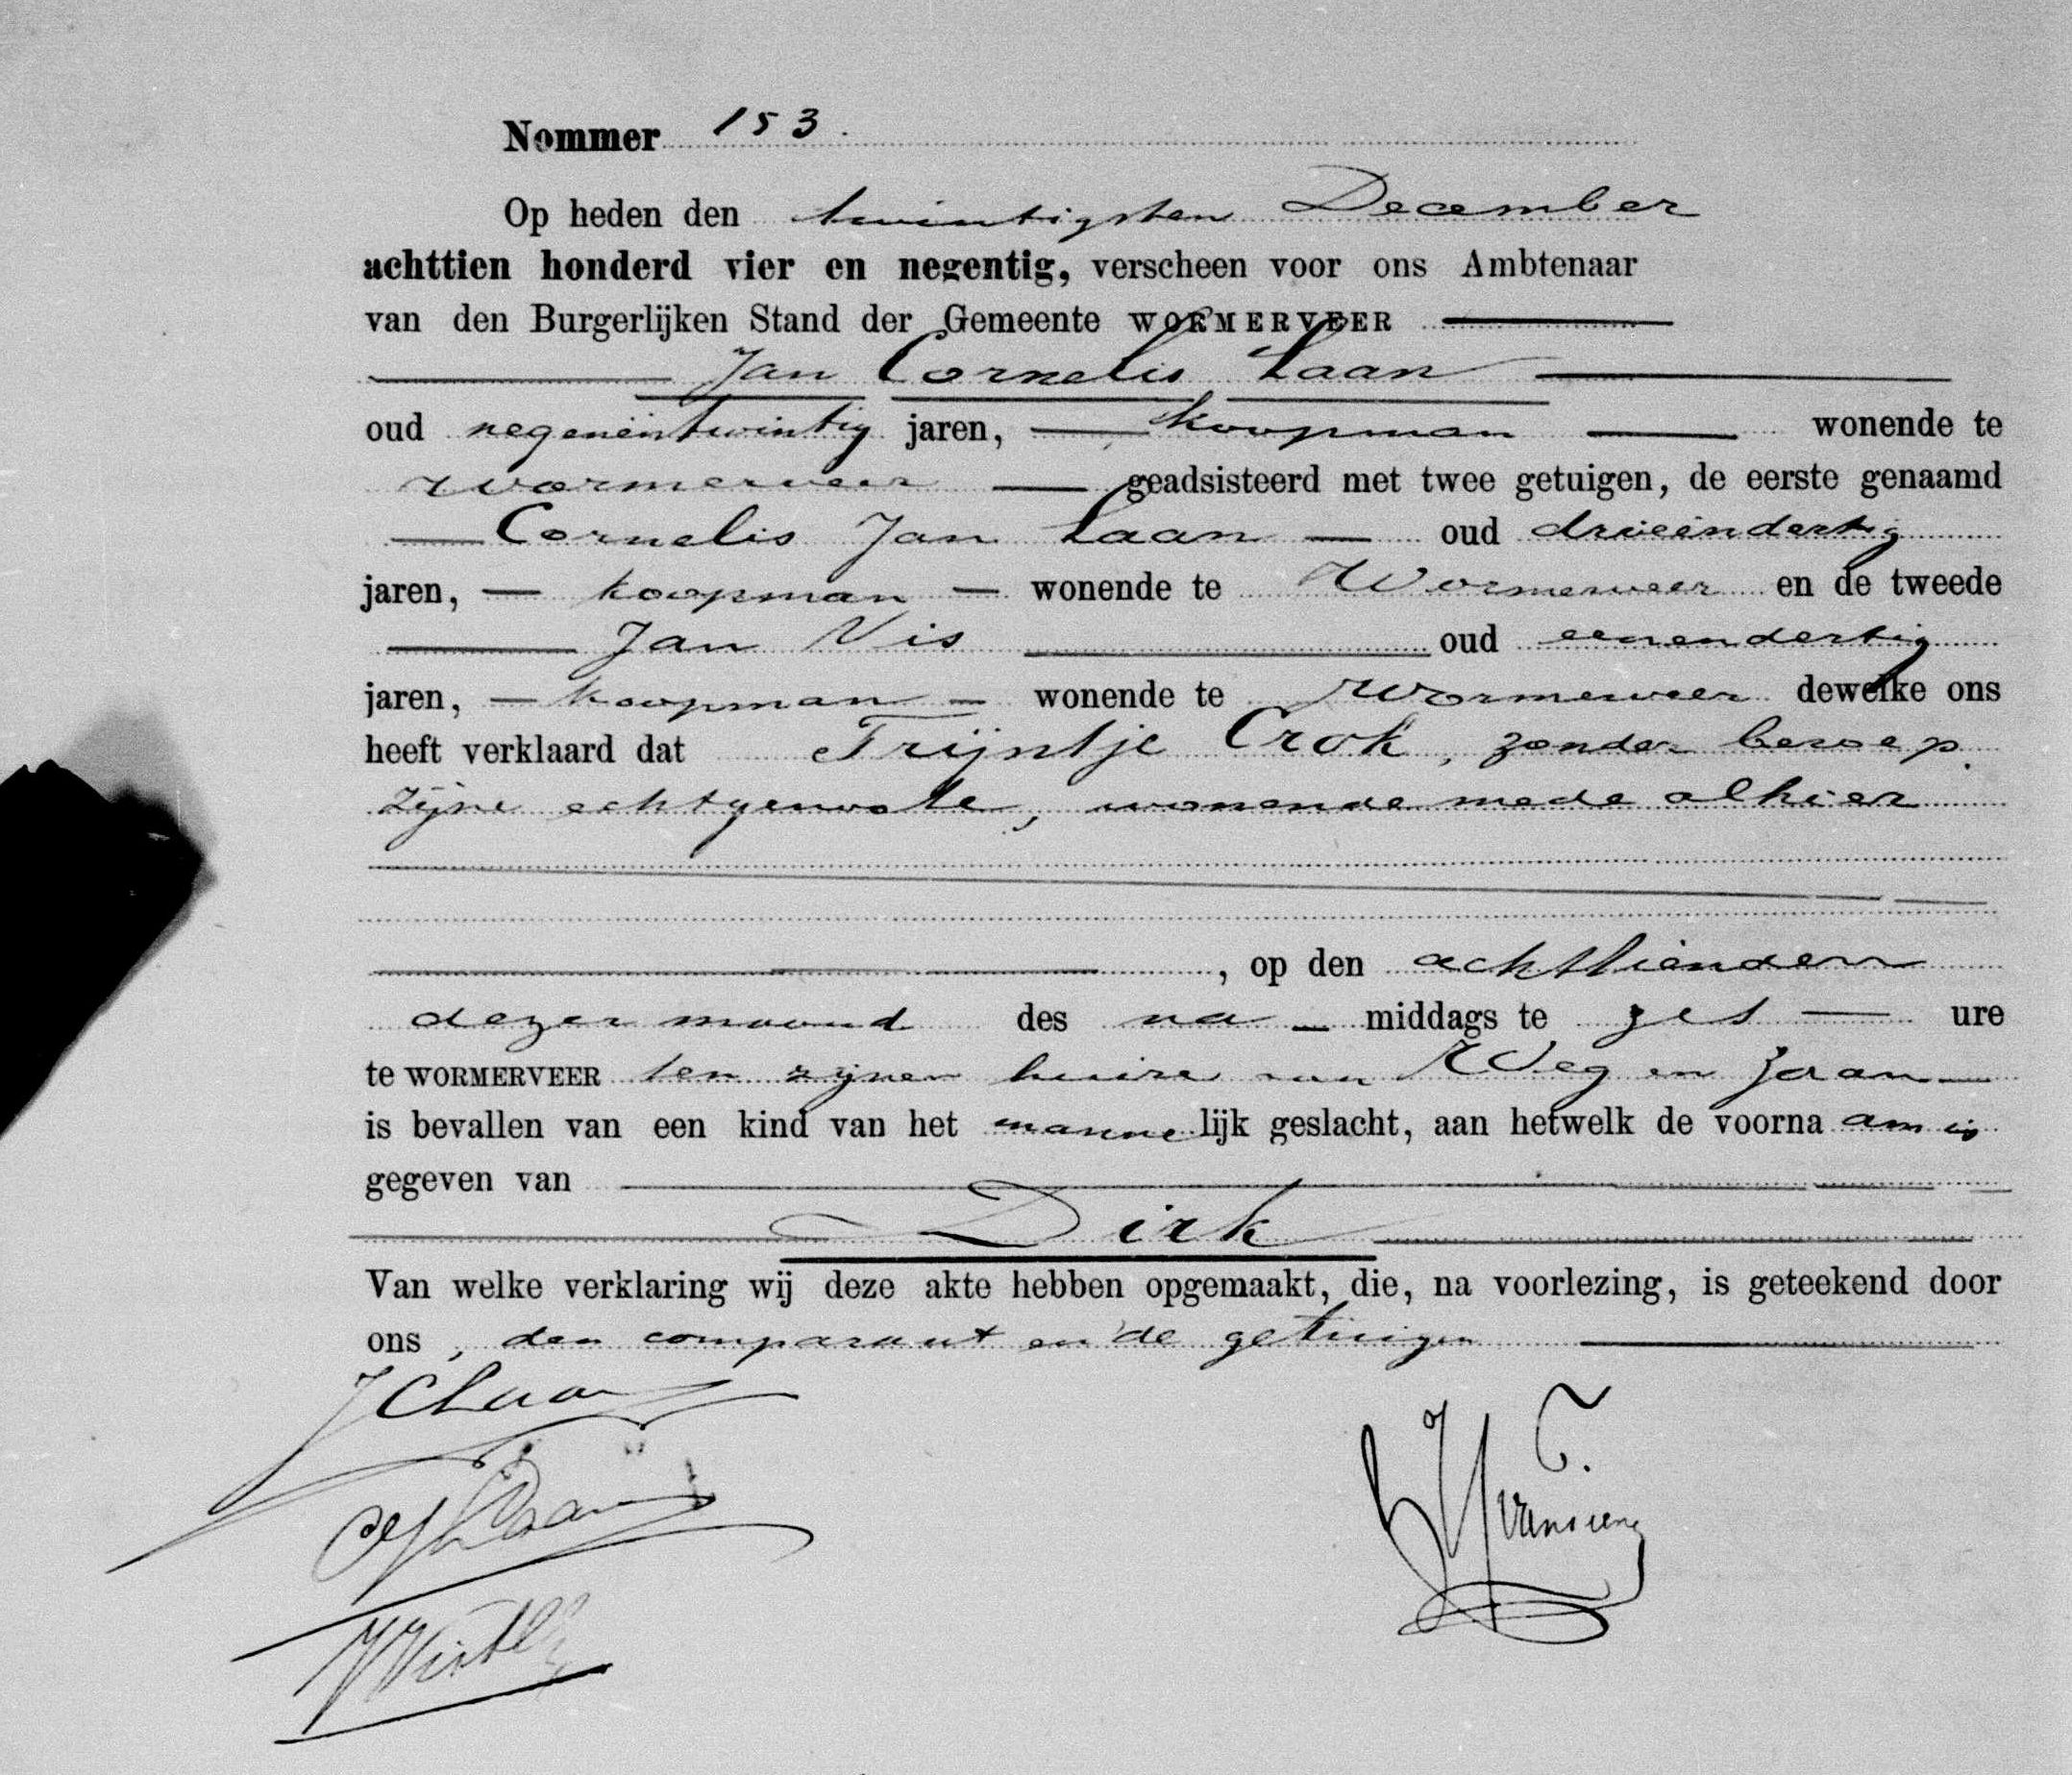 Nommer 153.
Op heden den twintigsten December
achttien honderd vier en negentig, verscheen voor ons Ambtenaar
van den Burgerlijken Stand der Gemeente WORMERVEER
Jan Cornelis Laan
oud negenëntwintig jaren, koopman wonende te
Wormerveer geadsisteerd met twee getuigen, de eerste genaamd
Cornelis Jan Laan oud drieëndertig
jaren, koopman wonende te Wormerveer en de tweede
Jan Vis oud eenendertig
jaren, koopman wonende te Wormerveer dewelke ons
heeft verklaard dat Trijntje Crok, zonder beroep,
zijne echtgenoote, wonende mede alhier
, op den achttienden
dezer maand des na middags te zes ure
te WORMERVEER ten zijnen huize aan Weg en Zaan
is bevallen van een kind van het mannelijk geslacht, aan hetwelk de voornaam is
gegeven van
Dirk
Van welke verklaring wij deze akte hebben opgemaakt, die, na voorlezing, is geteekend door
ons, den comparant en de getuigen
JCLaan
CJLaan